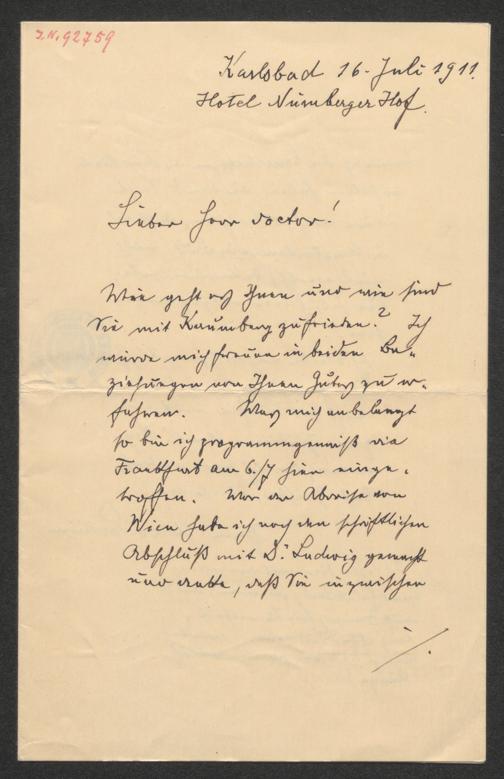 J.N. 92759
Karlsbad 16. Juli 1911.
Hotel Nürnberger Hof.
Lieber Herr Doctor!
Wie geht es Ihnen und wie sind
Sie mit Kaumberg zufrieden? Ich
würde mich freuen in beiden Be-
ziehungen von Ihnen Gutes zu er-
fahren. Was mich anbelangt
so bin ich programmgemäß via
Frankfurt am 6./7 hier einge-
troffen. Vor der Abreise von
Wien habe ich noch den schriftlichen
Abschluß mit Dr. Ludwig gemacht
und denke, daß Sie inzwischen
./.